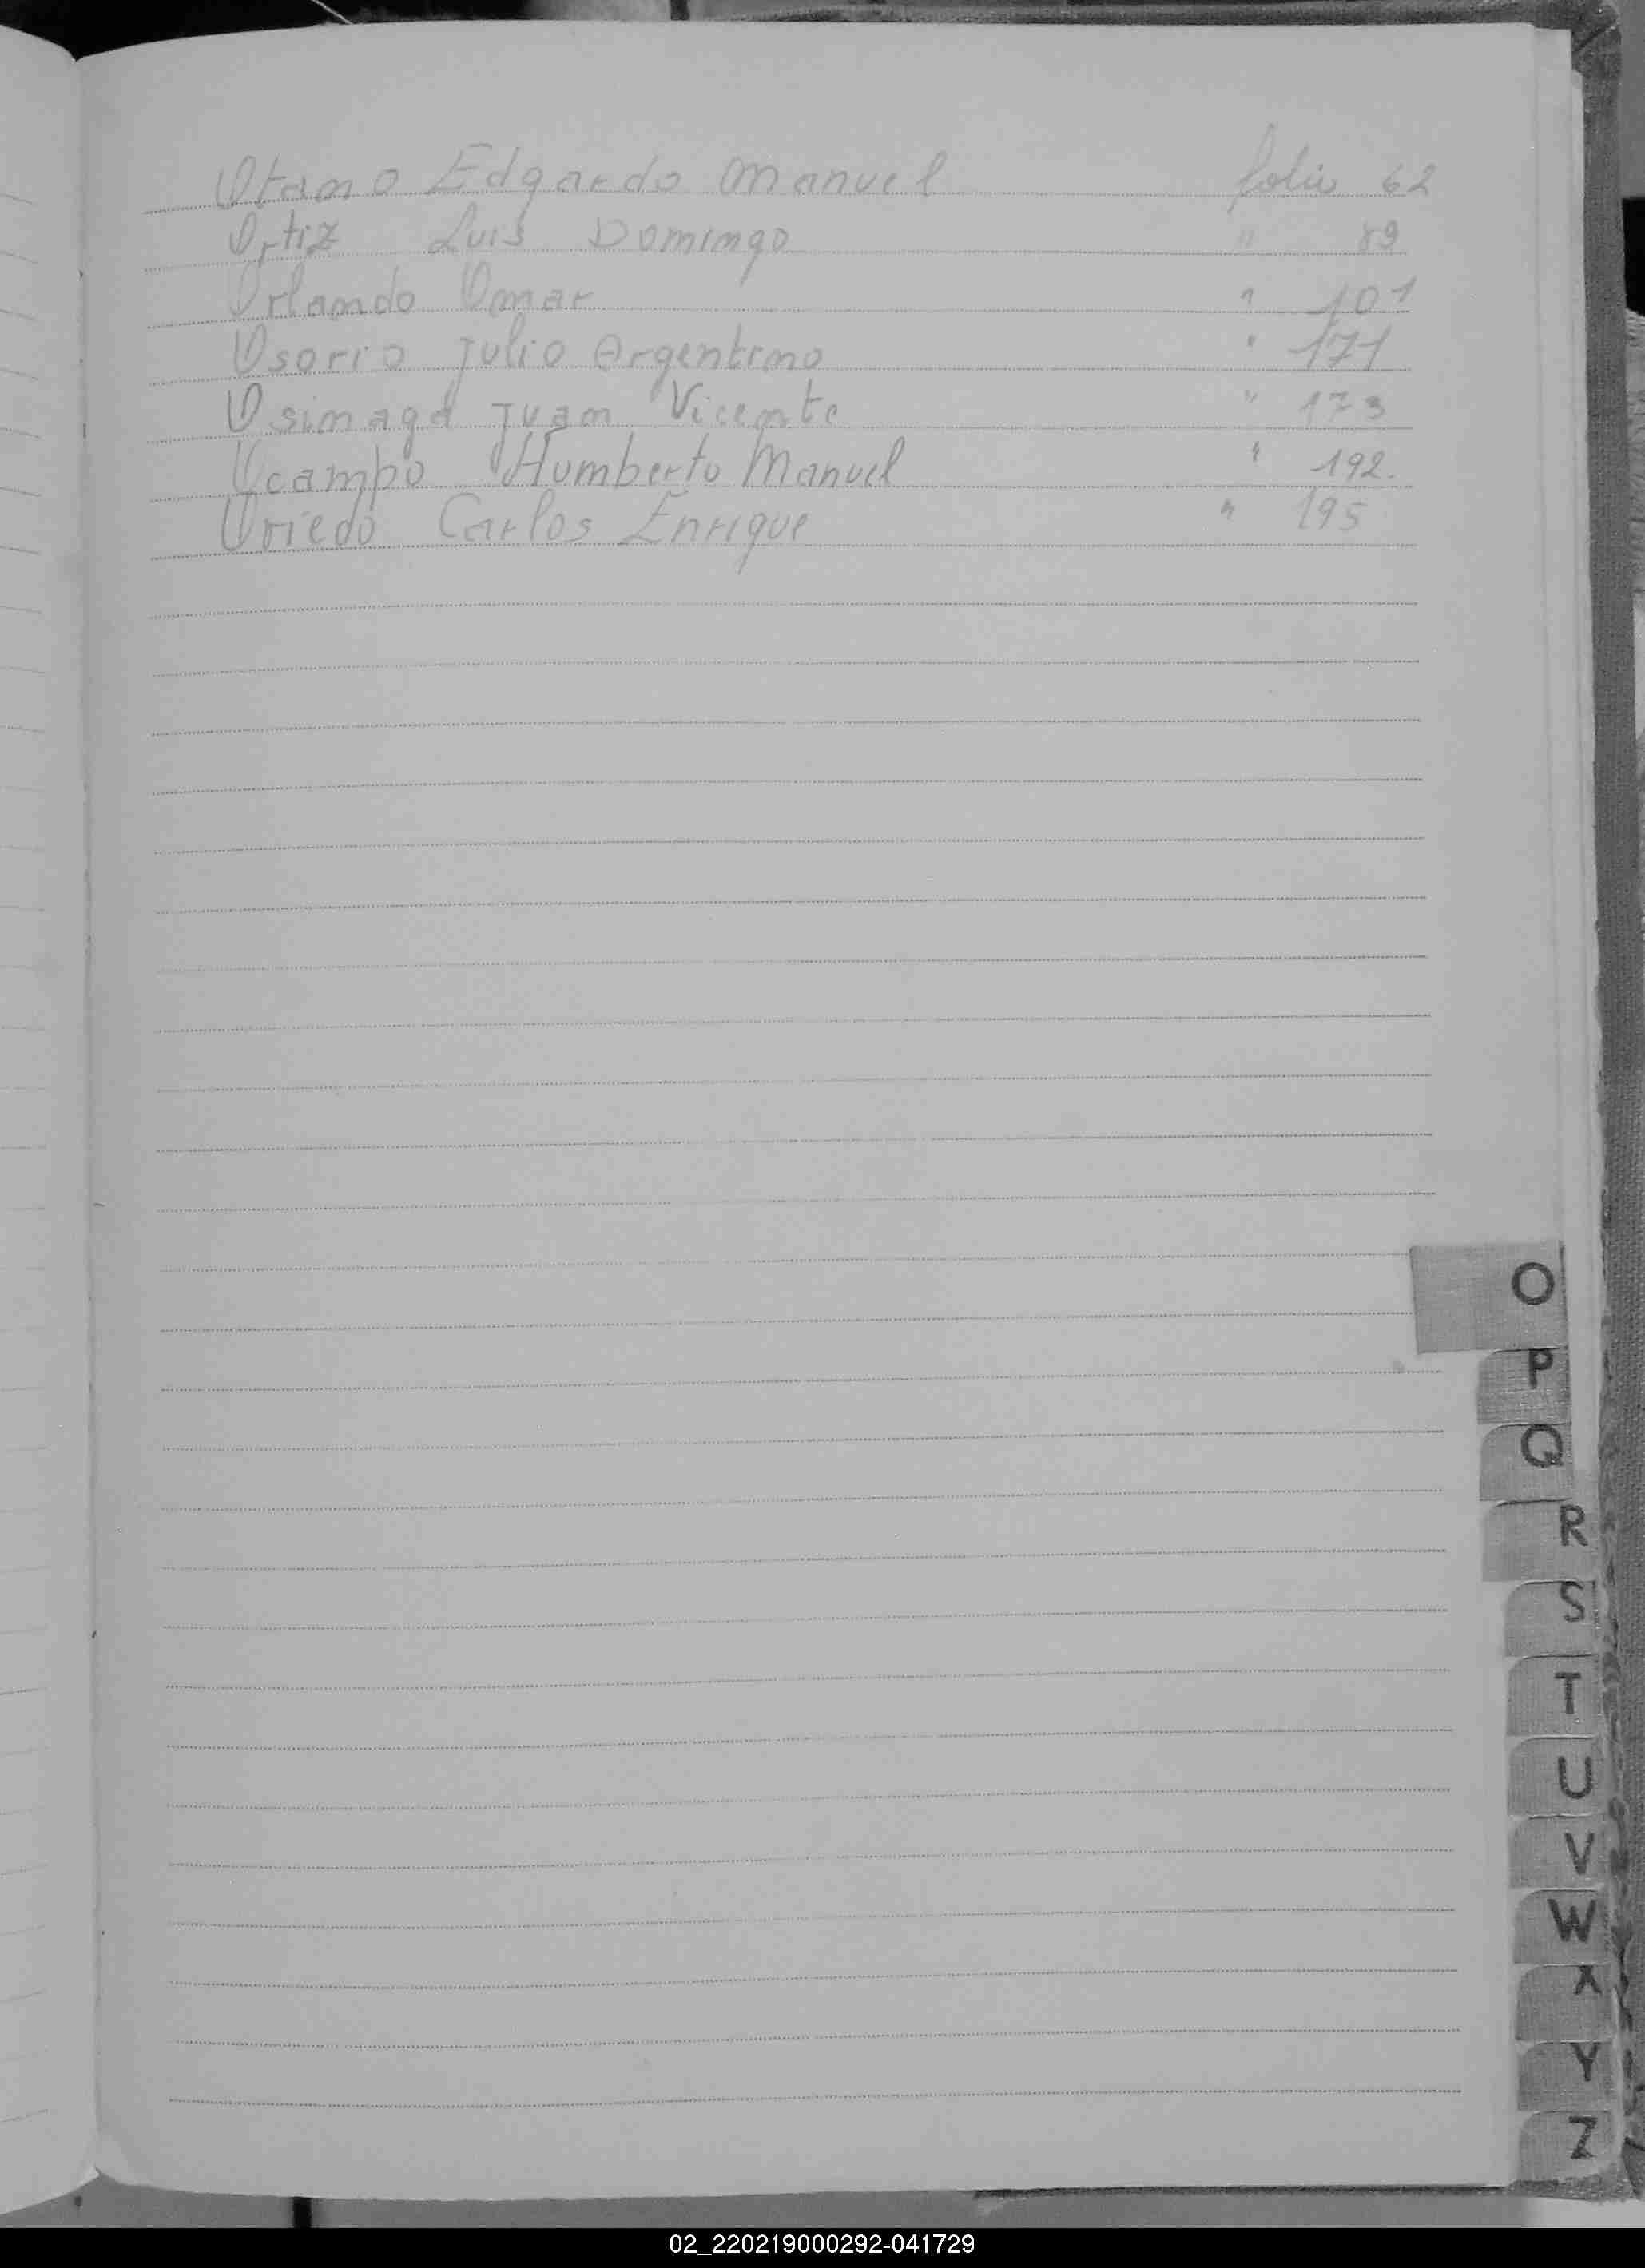 Otamo Edgardo Manuel folio 62
Ortiz Luis Domingo " 89
Orlando Omar " 101
Osorio Julio Argentino " 171
Osimaga Juan Vicente " 173
Ocampo Humberto Manuel " 192.
Oviedo Carlos Enrique " 195
O
P
Q
R
S
T
U
V
W
X
Y
Z
02_220219000292-041729